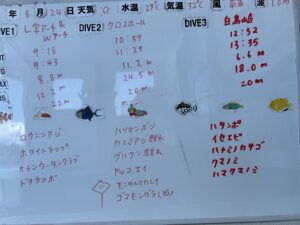 年 8月 24日 天気 水温 29℃ 気温 32℃ 風 南東 波 1.0m
DIVE1 L字アーチ&Wアーチ
9:13
9:43
8.8 m
12.2 m
20 m
ロウニンアジ
ホワイトチップ
オランウータンクラブ
ドクウツボ
DIVE2 クロスホール
10:39
11:29
11.2 m
24.5 m
20 m
ハリセンボン
カスミアジ 群れ
グルクン 群れ
ヤッコエイ
モンダルマガレイ
ゴマモンガラ(幼)
DIVE3 白鳥崎
12:52
13:35
6.6 m
18.0 m
20 m
ハタンポ
イセエビ
ハナミノカサゴ
クマノミ
ハマクマノミ